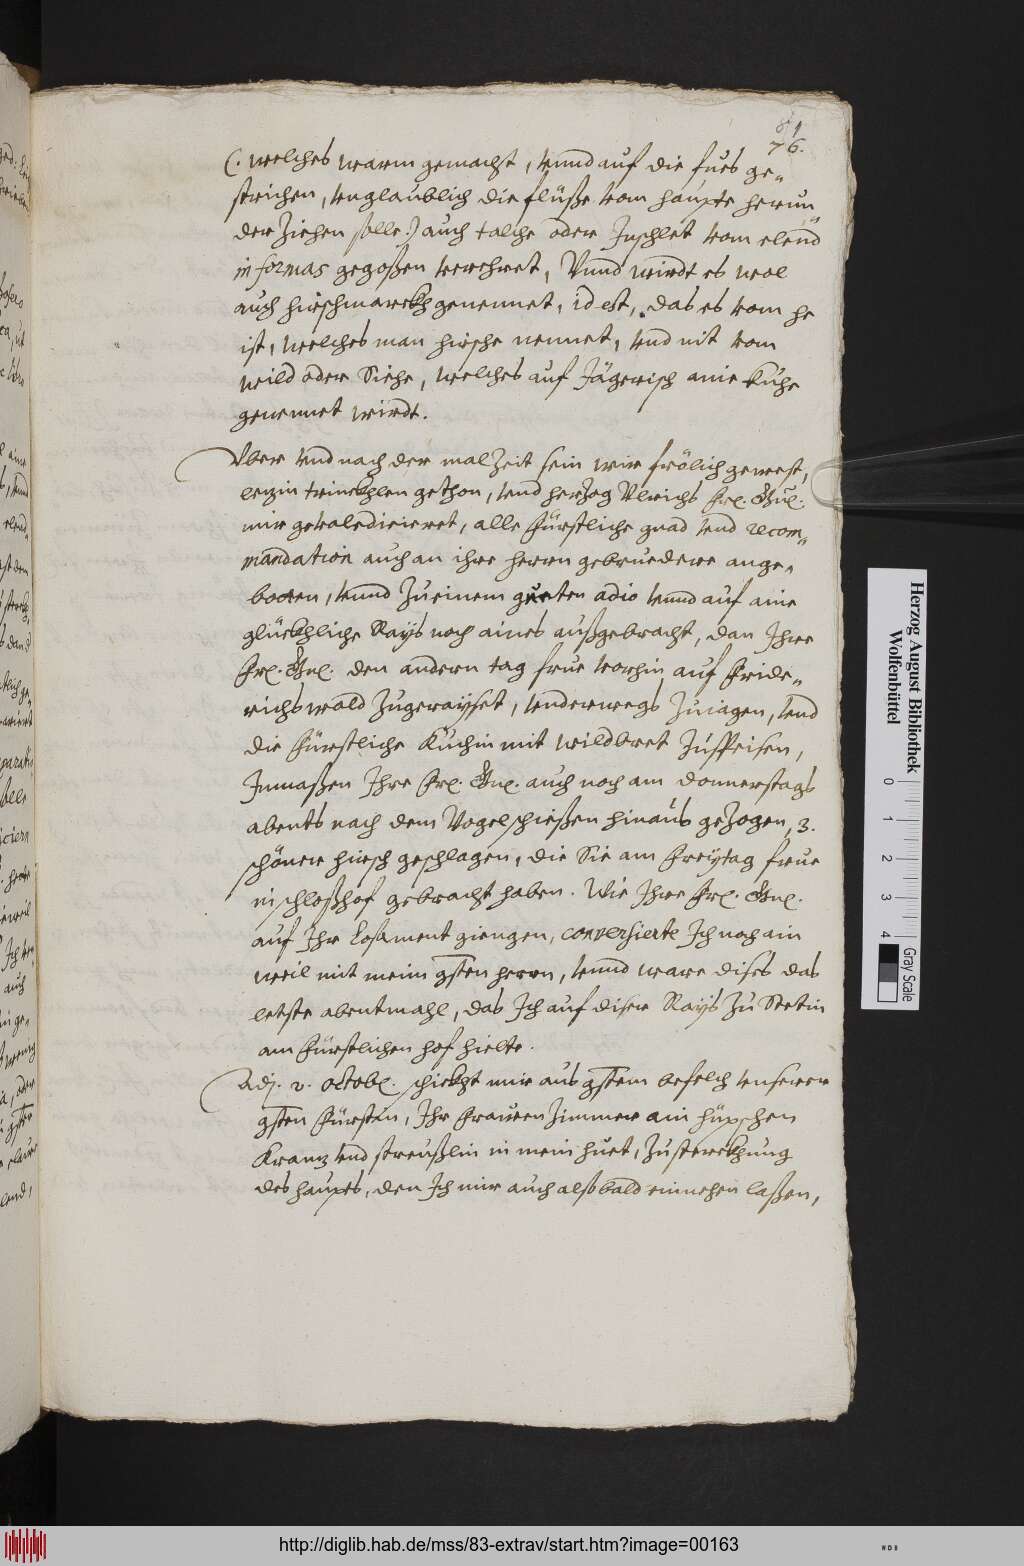 81
76.
(. welches warm gemacht, vnnd auf die fues ge„
strichen, vnglaublich die flüße vom haupte herun„
der ziehen solle.) auch talche oder Inschlet vom elend
in formas gegoßen verehret, Vnnd wirdt es wol
auch hirschmarckh genennet, id est, das es vom he
ist, welches man hirsche nennet, vnd nit vom
wild oder Siehe, welches auf Jägerisch ain Kuhe
genennet wirdt.
Vber vnd nach der malzeit sein wir frölich gewest,
letzin trinckhlen gethon, vnd herzog Vlrichs Frl. Gnl.
mir gevaledicieret, alle Fürstliche gnad vnd recom„
mandation auch an ihre herrn gebruedere ange„
boten, vnnd zu einem gueten adio vnnd auf aine
glückhliche Rays noch aines außgebracht, dan Ihre
Frl. Gnl. den andern tag frue vorhin auf Fride„
richswald zugerayset, vnderwegs zu iagen, vnd
die Fürstliche Kuchin mit wildbret zu speisen,
Inmaßen Ihre Frl. Gnl. auch noch am donnerstags
abents nach dem Vogelschießen hinaus gezogen, 3.
schöner hirsch geschlagen, die Sie am Freytag frue
in schloßhof gebracht haben. Wie Ihre Frl. Gnl.
auf Ihr Losament giengen, conversierte Ich noch ain
weil mit meim gsten herrn, vnnd ware dises das
letste abentmahl, das Ich auf diser Rays zu Stetin
am Fürstlichen hof hielte.
Adj. 2. octobl. schickht mir aus gstem befelch vnserer
gsten Fürstin, Ihr Frauenzimmer ain hüpschen
Kranz vnd streußlin in mein huet, zu sterckhung
des haupts, den Ich mir auch alsbald einnehen laßen,
Herzog August Bibliothek
Wolfenbüttel
0 1 2 3 4
Gray Scale
http://diglib.hab.de/mss/83-extrav/start.htm?image=00163
WDB